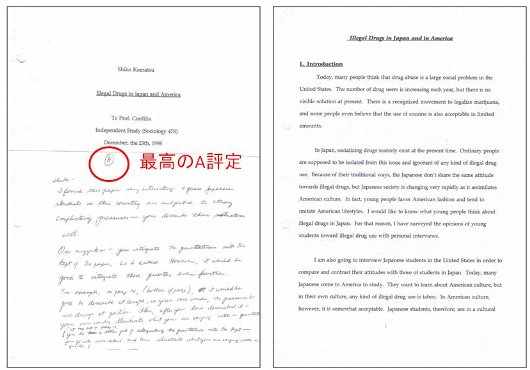 Shiko Komatsu
Illegal Drugs in Japan and America
To Prof. Cordilia
Independent Study (Sociology 478)
December, the 23th, 1998
A
最高のA評定
Shiko -
I found this paper very interesting. I guess Japanese
students in this country are subjected to strong
conflicting pressures - you describe their situation
well.
One suggestion - you integrate the quotations into the
text of the paper, as I asked. However, it would be
good to integrate these quotes even further.
For example, on page 16, (bottom of page), it would be
good to describe at length, in your own words, the pressures to
use drugs at parties. Then, after you have described it in
your own words, illustrate what you are saying with a quotation
Illegal Drugs in Japan and in America
I. Introduction
Today, many people think that drug abuse is a large social problem in the
United States. The number of drug users is increasing each year, but there is no
visible solution at present. There is a recognized movement to legalize marijuana,
and some people even believe that the use of cocaine is also acceptable in limited
amounts.
In Japan, socializing drugs scarcely exist at the present time. Ordinary people
are supposed to be isolated from this issue and ignorant of any kind of illegal drug
use. Because of their traditional ways, the Japanese don't share the same attitude
towards illegal drugs, but Japanese society is changing very rapidly as it assimilates
American culture. In fact, young people favor American fashion and tend to
imitate American lifestyles. I would like to know what young people think about
illegal drugs in Japan. For that reason, I have surveyed the opinions of young
students toward illegal drug use with personal interviews.
I am also going to interview Japanese students in the United States in order to
compare and contrast their attitudes with those of students in Japan. Today, many
Japanese come to America to study. They want to learn about American culture, but
in their own culture, any kind of illegal drug use is taboo. In American culture,
however, it is somewhat acceptable. Japanese students, therefore, are in a cultural